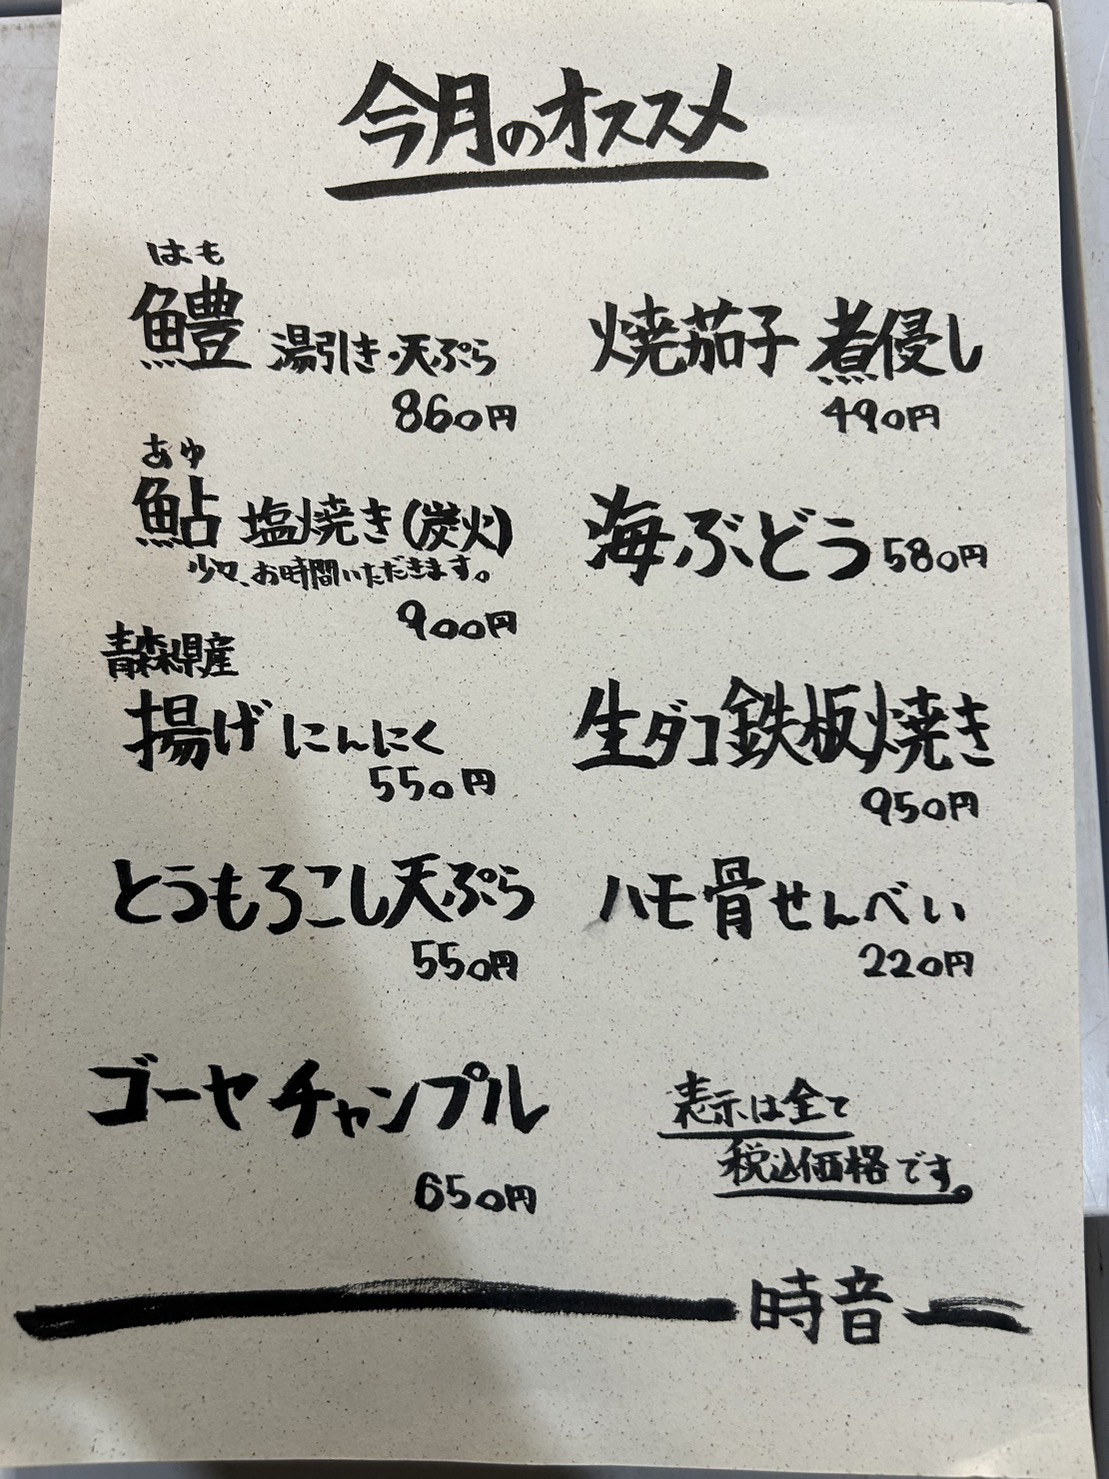 今月のオススメ
はも
鱧 湯引き・天ぷら
860円
あゆ
鮎 塩焼き(炭火)
少々、お時間いただきます。
900円
青森県産
揚げにんにく
550円
とうもろこし天ぷら
550円
ゴーヤチャンプル
650円
焼茄子 煮侵し
490円
海ぶどう 580円
生ダコ鉄板焼き
950円
ハモ骨せんべい
220円
表示は全て
税込価格です。
時音